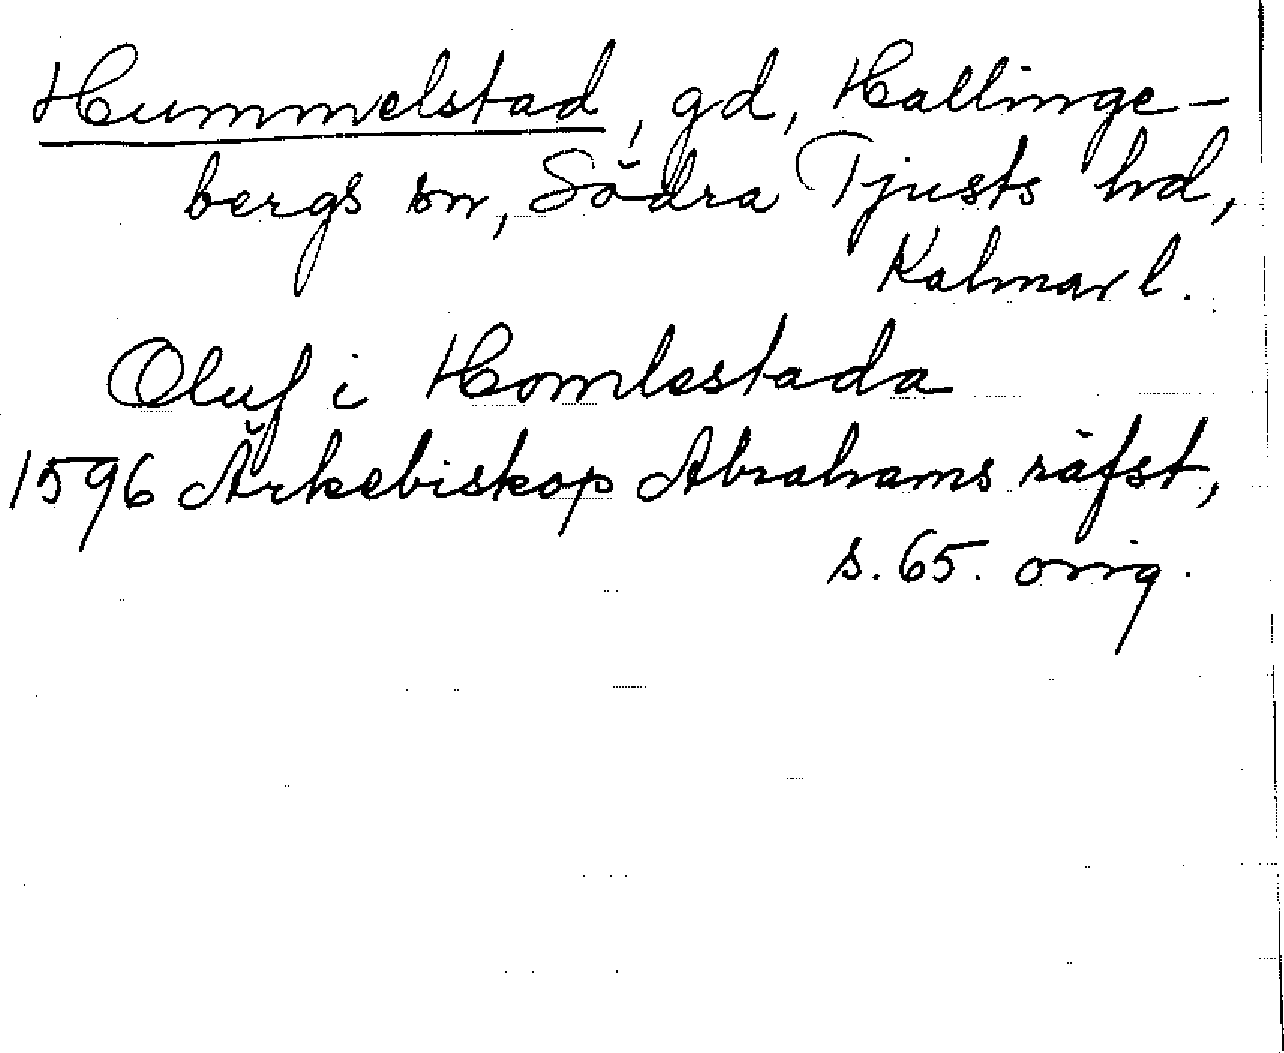 Hummelstad, gd, Hallinge-
bergs sn, Södra Tjusts hd,
Kalmar l.
Oluf i Homlestada
1596 Ärkebiskop Abrahams räfst,
s. 65. orig.